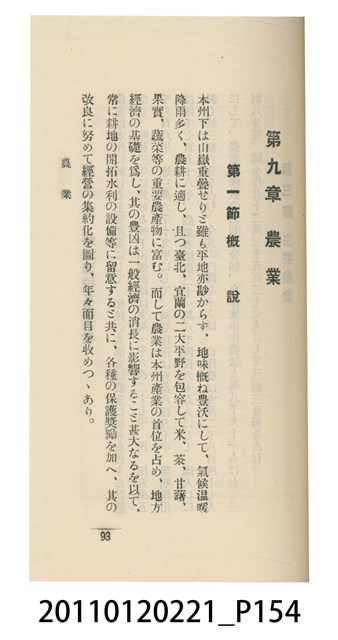 第九章 農業
第一節 概說
本州下は山嶽重疊せりと雖も平地亦尠からず、地味概ね豊沃にして、氣候温暖
降雨多く、農耕に適し、且つ臺北、宜蘭の二大平野を包容して米、茶、甘藷、
果實、蔬菜等の重要農産物に富む。而して農業は本州産業の首位を占め、地方
經濟の基礎を爲し、其の豊凶は一般經濟の消長に影響すること甚大なるを以て、
常に耕地の開拓水利の設備等に留意すると共に、各種の保護奬勵を加へ、其の
改良に努めて經營の集約化を圖り、年々面目を收めつゝあり。
農業
93
20110120221_P154